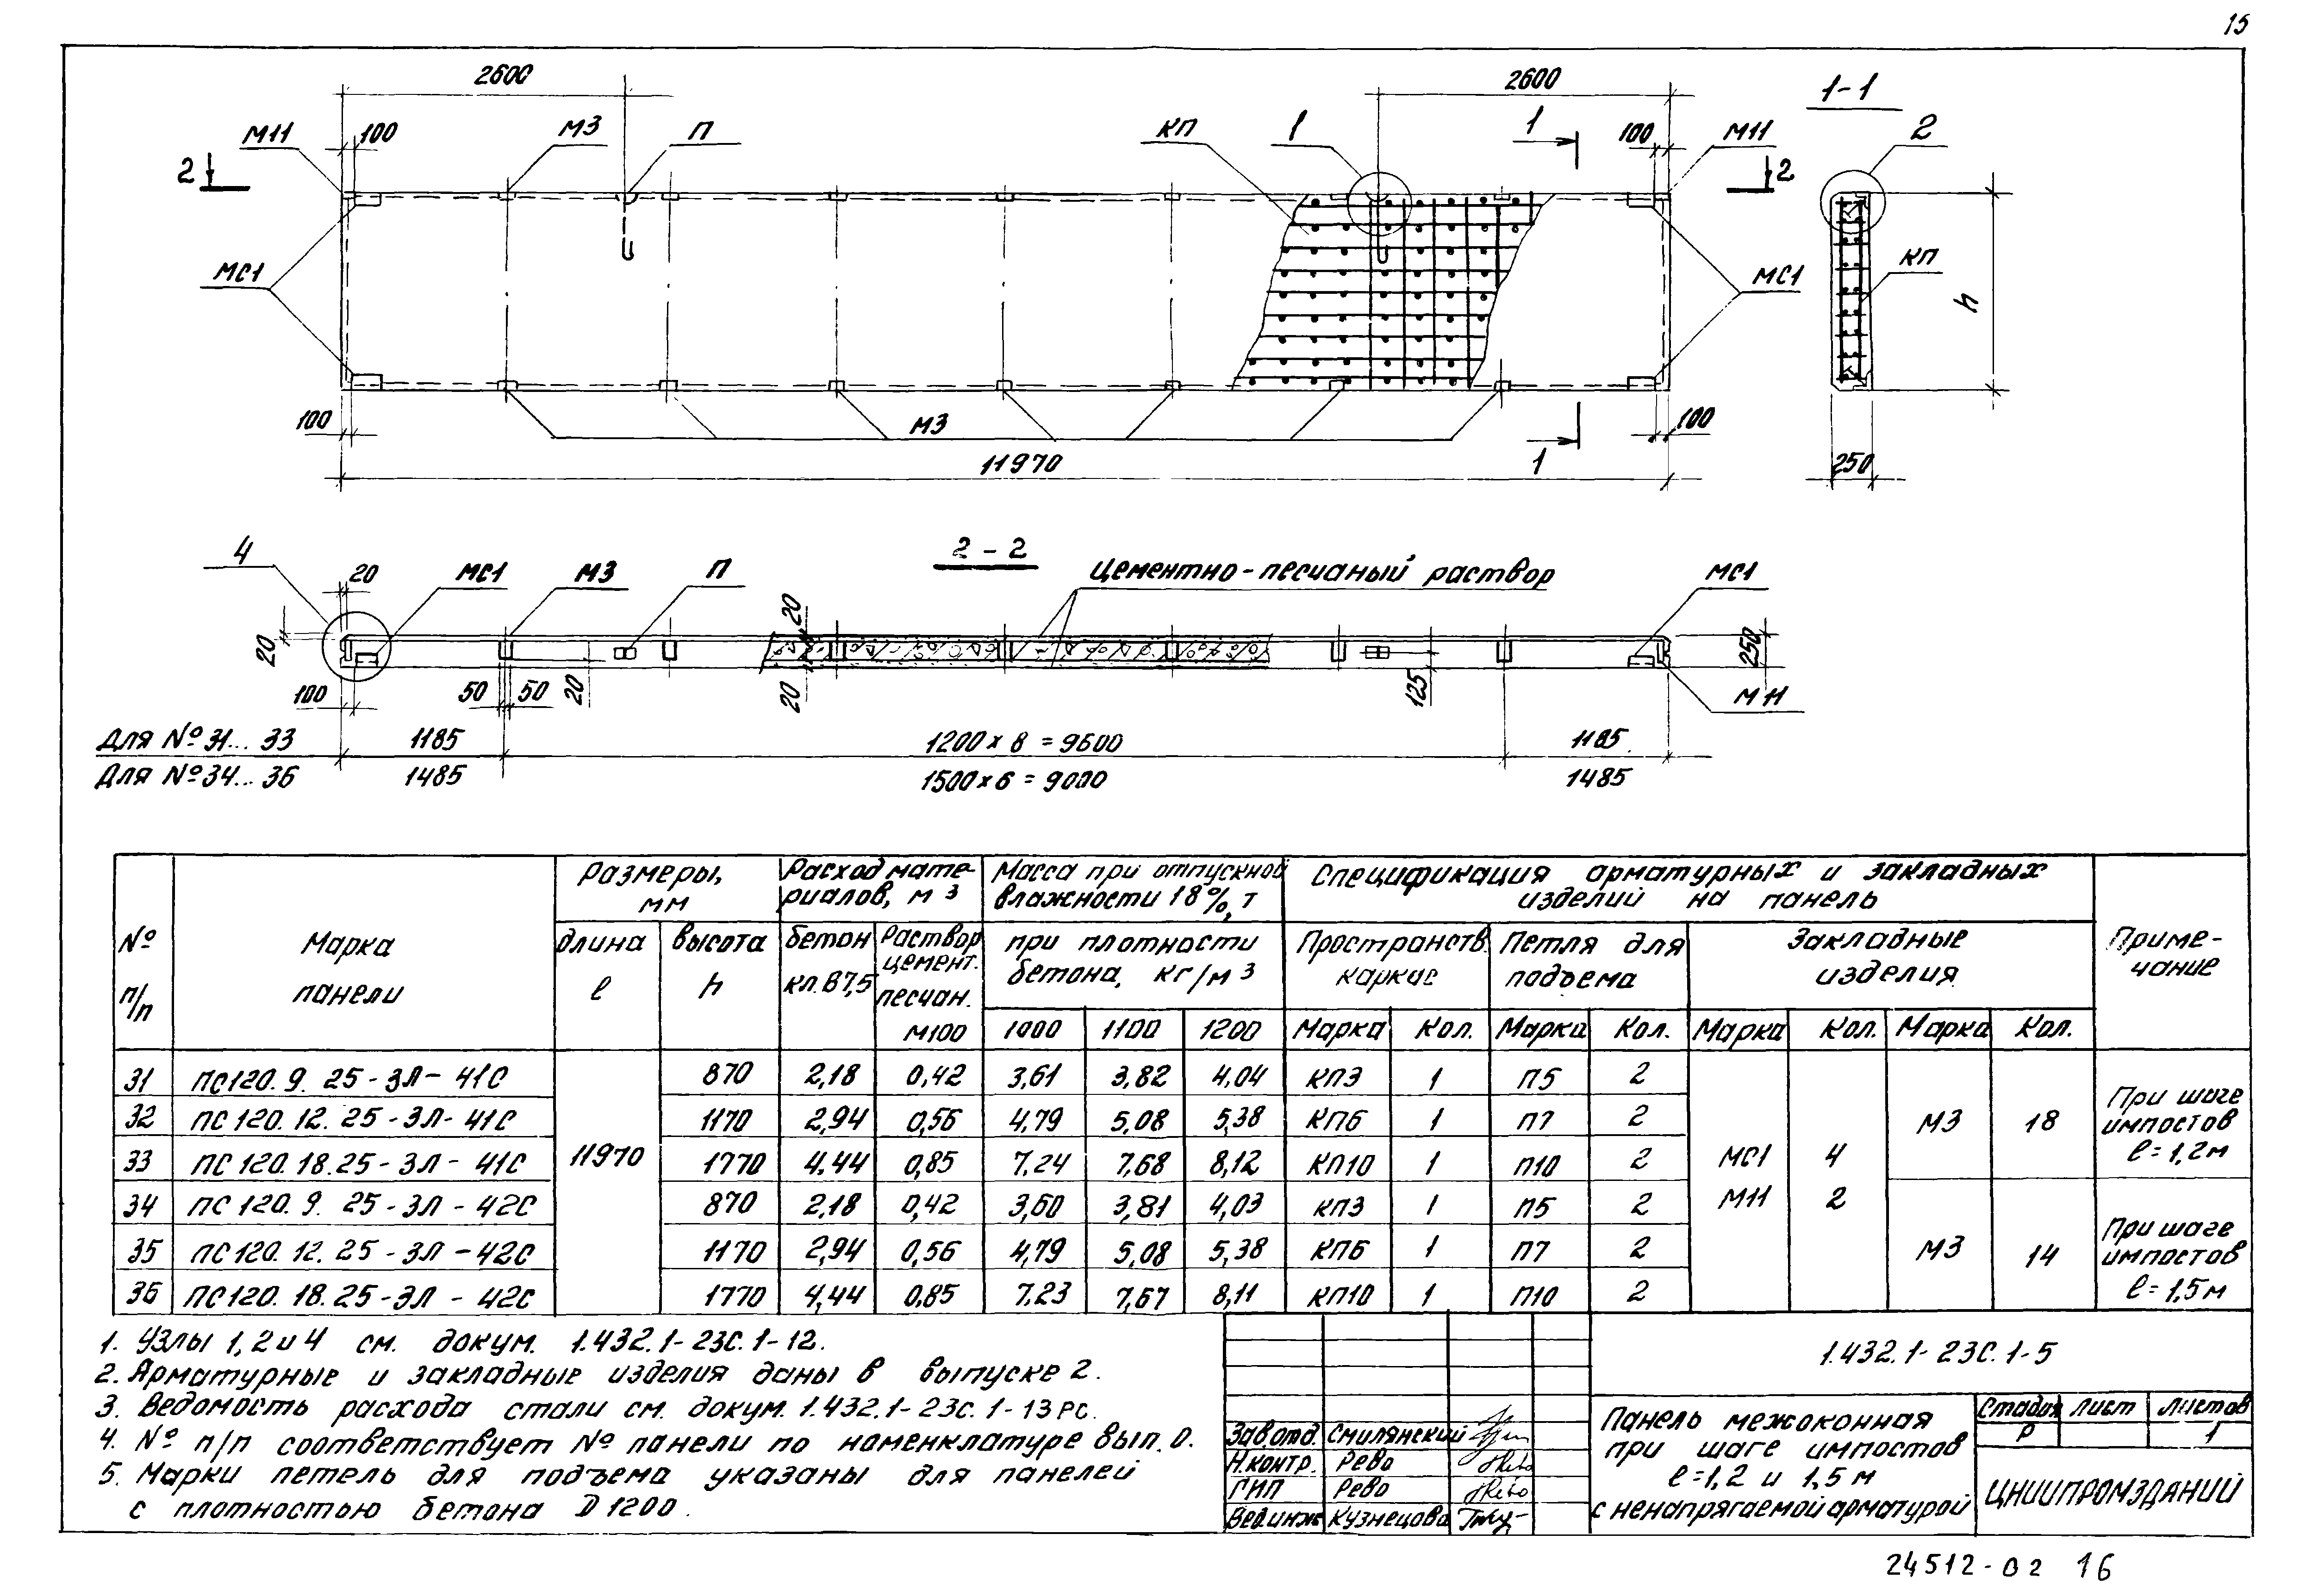 15
2600
2600
1-1
М11
100
М3
П
КП
1
1
100
М11
2
2
2
МС1
МС1
КП
h
100
М3
100
11970
1
250
2-2
4
20
МС1
М3
П
20
Цементно-песчаный раствор
МС1
20
250
100
50
50
20
20
125
М11
Для №31...33
1185
1200×8=9600
1185
Для №34...36
1485
1500×6=9000
1485
№ п/п
Марка панели
Размеры, мм
Расход материалов, м3
Масса при отпускной влажности 18%, т
Спецификация арматурных и закладных изделий на панель
Примечание
длина l
высота h
бетон кл. В7,5
Раствор цемент. песчан. М100
при плотности бетона, кг/м3
Пространств. каркас
Петля для подъема
Закладные изделия
1000 1100 1200 Марка Кол. Марка Кол. Марка Кол. Марка Кол.
31 ПС120.9.25-3Л-41С 870 2,18 0,42 3,61 3,82 4,04 КП3 1 П5 2
32 ПС120.12.25-3Л-41С 1170 2,94 0,56 4,79 5,08 5,38 КП6 1 П7 2
33 ПС120.18.25-3Л-41С 1770 4,44 0,85 7,24 7,68 8,12 КП10 1 П10 2
34 ПС120.9.25-3Л-42С 870 2,18 0,42 3,60 3,81 4,03 КП3 1 П5 2
35 ПС120.12.25-3Л-42С 1170 2,94 0,56 4,79 5,08 5,38 КП6 1 П7 2
36 ПС120.18.25-3Л-42С 1770 4,44 0,85 7,23 7,67 8,11 КП10 1 П10 2
11970
МС1 4
М11 2
М3 18
При шаге
импостов
l=1,2м
М3 14
При шаге
импостов
l=1,5м
1. Узлы 1,2 и 4 см. докум. 1.432.1-23С.1-12.
2. Арматурные и закладные изделия даны в выпуске 2.
3. Ведомость расхода стали см. докум. 1.432.1-23с.1-13РС.
4. № п/п соответствует № панели по номенклатуре вып.0.
5. Марки петель для подъема указаны для панелей
с плотностью бетона D1200.
1.432.1-23С.1-5
Зав.отд. Смилянский
Н.контр. Рево
ГИП Рево
Вед.инж Кузнецова
Панель межоконная
при шаге импостов
l=1,2 и 1,5м
с ненапрягаемой арматурой
Стадия Лист Листов
Р 1
ЦНИИПРОМЗДАНИЙ
24512-02 16